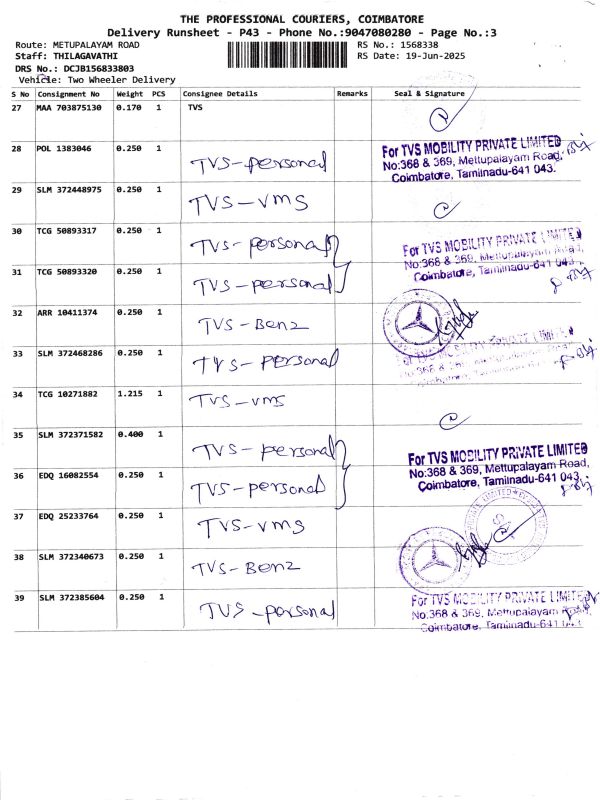 THE PROFESSIONAL COURIERS, COIMBATORE
Delivery Runsheet - P43 - Phone No.:9047080280 - Page No.:3
Route: METUPALAYAM ROAD RS No.: 1568338
Staff: THILAGAVATHI RS Date: 19-Jun-2025
DRS No.: DCJB156833803
Vehicle: Two Wheeler Delivery
S No Consignment No Weight PCS Consignee Details Remarks Seal & Signature
27 MAA 703875130 0.170 1 TVS
28 POL 1383046 0.250 1 TVS-personal
For TVS MOBILITY PRIVATE LIMITED
No:368 & 369, Mettupalayam Road,
Coimbatore, Tamilnadu-641 043.
29 SLM 372448975 0.250 1 TVS-VMS
30 TCG 50893317 0.250 1 TVS-personal
For TVS MOBILITY PRIVATE LIMITED
No:368 & 369, Mettupalayam Road,
Coimbatore, Tamilnadu-641 043.
31 TCG 50893320 0.250 1 TVS-personal
32 ARR 10411374 0.250 1 TVS-Benz
33 SLM 372468286 0.250 1 TVS-personal
For TVS MOBILITY PRIVATE LIMITED
No:368 & 369, Mettupalayam Road,
Coimbatore, Tamilnadu-641 043.
34 TCG 10271882 1.215 1 TVS-VMS
35 SLM 372371582 0.400 1 TVS-personal
For TVS MOBILITY PRIVATE LIMITED
No:368 & 369, Mettupalayam Road,
Coimbatore, Tamilnadu-641 043.
36 EDQ 16082554 0.250 1 TVS-personal
37 EDQ 25233764 0.250 1 TVS-VMS
38 SLM 372340673 0.250 1 TVS-Benz
39 SLM 372385604 0.250 1 TVS-personal
For TVS MOBILITY PRIVATE LIMITED
No:368 & 369, Mettupalayam Road,
Coimbatore, Tamilnadu-641